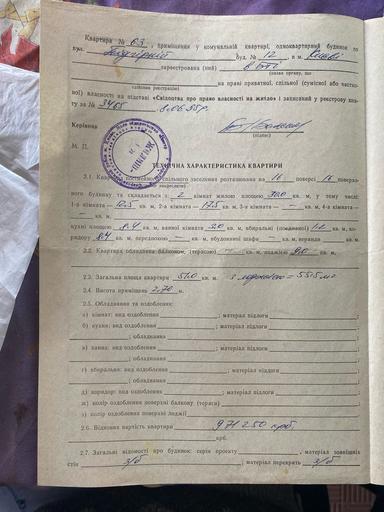 Квартира № 63, приміщення у комунальній квартирі, одноквартирний будинок по
вул. буд. № 12 в м. Києві
зареєстрована (ний) в БТІ
(назва органу, що
на праві приватної, спільної (сумісної або частко-
(здійснив реєстрацію)
вої) власності на підставі «Свідоцтва про право власності на житло» і записаний у реєстрову кни-
гу за № 3465 8.06.95р.
Керівник
(підпис)
М. П.
ТЕХНІЧНА ХАРАКТЕРИСТИКА КВАРТИРИ
2.1. спільного заселення розташована на 16 поверсі 16 поверхо-
вого будинку та складається з 2 кімнат жилою площею 30,0 кв. м, у тому числі:
1-а кімната — 12,5 кв. м, 2-а кімната — 17,5 кв. м, 3-я кімната — — кв. м, 4-а кімната —
— кв. м,
кухні площею 8,4 кв. м, ванної кімнати кв. м, вбиральні кв. м, ко-
ридору 8,4 кв. м, передпокою — кв. м, вбудованої шафи — кв. м, веранди кв. м.
2.2. Квартира обладнана балконом, (терасою) — кв. м, лоджією кв. м.
2.3. Загальна площа квартири 51,0 кв. м. з лоджією = 55,5 м2
2.4. Висота приміщень 2,70 м.
2.5. Обладнання та оздоблення:
а) кімнат: вид оздоблення ; матеріал підлоги
б) кухні: вид оздоблення ; матеріал підлоги
; обладнання
в) ванна: вид оздоблення ; матеріал підлоги
; обладнання
г) вбиральня: вид оздоблення ; матеріал підлоги
; обладнання
д) коридор: вид оздоблення ; матеріал підлоги
ж) колір оздоблення поверхні балкону (тераси)
з) колір оздоблення поверхні лоджії
2.6. Відновна вартість квартири 971250 крб
крб.
2.7. Загальні відомості про будинок: серія проекту , матеріал зовнішніх
стін з/б ; матеріал перекрить з/б